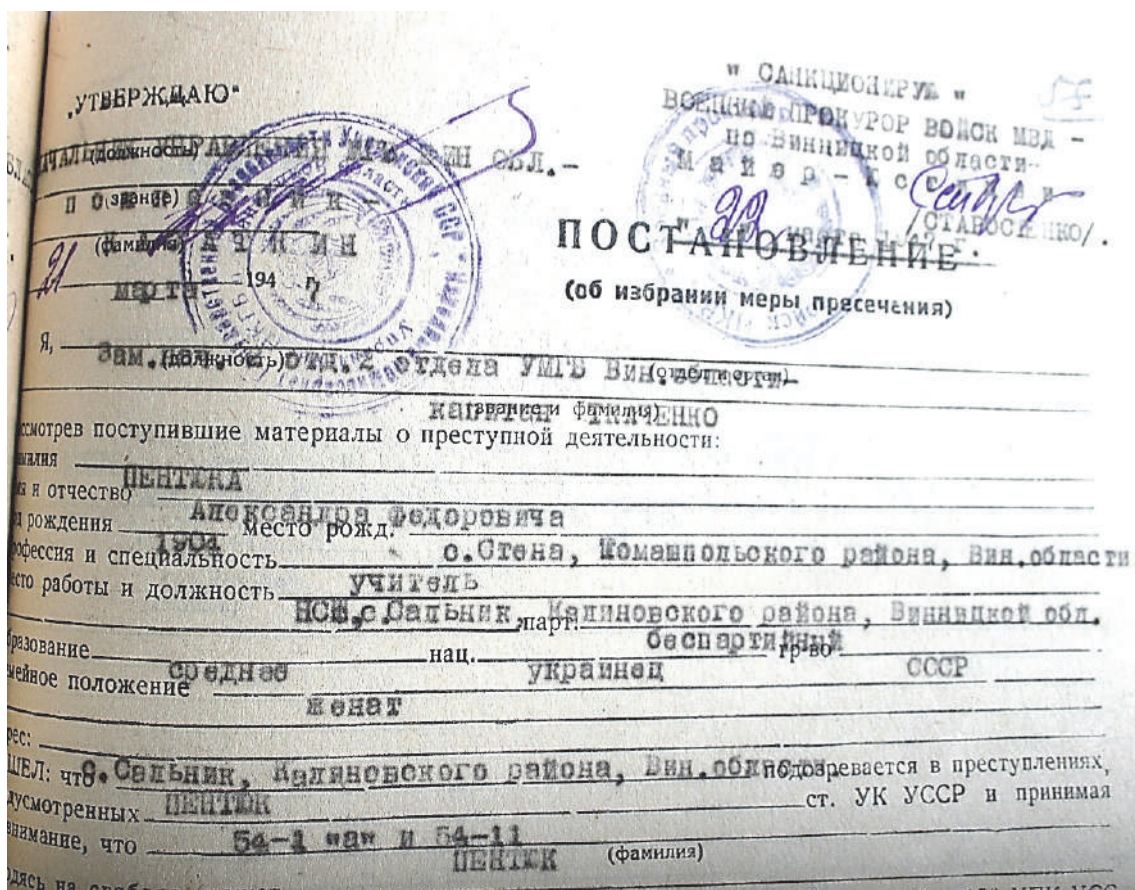 „УТВЕРЖДАЮ"
НАЧАЛЬНИК УПРАВЛЕНИЯ МГБ ВИН ОБЛ.-
(должность)
(звание)
(фамилия)
21
марта 194 7
" САНКЦИОНИРУЮ "
ВОЕННЫЙ ПРОКУРОР ВОЙСК МВД -
по Винницкой области-
Майор-Юстиции
/СТАВОСТЕНКО/.
марта
ПОСТАНОВЛЕНИЕ
(об избрании меры пресечения)
Я, Зам. отд.2 отдела УМГБ Вин.области-
(должность)
капитан ТКАЧЕНКО
(звание и фамилия)
смотрев поступившие материалы о преступной деятельности:
милия
ПЕНТЮКА
мя и отчество
Александра Федоровича
д рождения место рожд.
1904 с.Стена, Томашпольского района, Вин.области
офессия и специальность
учитель
есто работы и должность
НСШ,с.Сальник, Калиновского района, Винницкой обл.
парт.
беспартийный
бразование нац. гр-во
среднее украинец СССР
мейное положение
женат
рес:
с.Сальник, Калиновского района, Вин.области
ШЕЛ: что подозревается в преступлениях,
ПЕНТЮК
дусмотренных ст. УК УССР и принимая
54-1 "а" и 54-11
внимание, что
ПЕНТЮК
(фамилия)